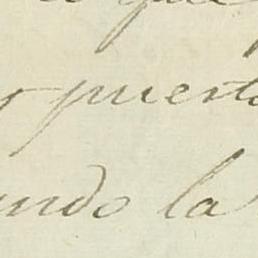 que
puerto
ndo la